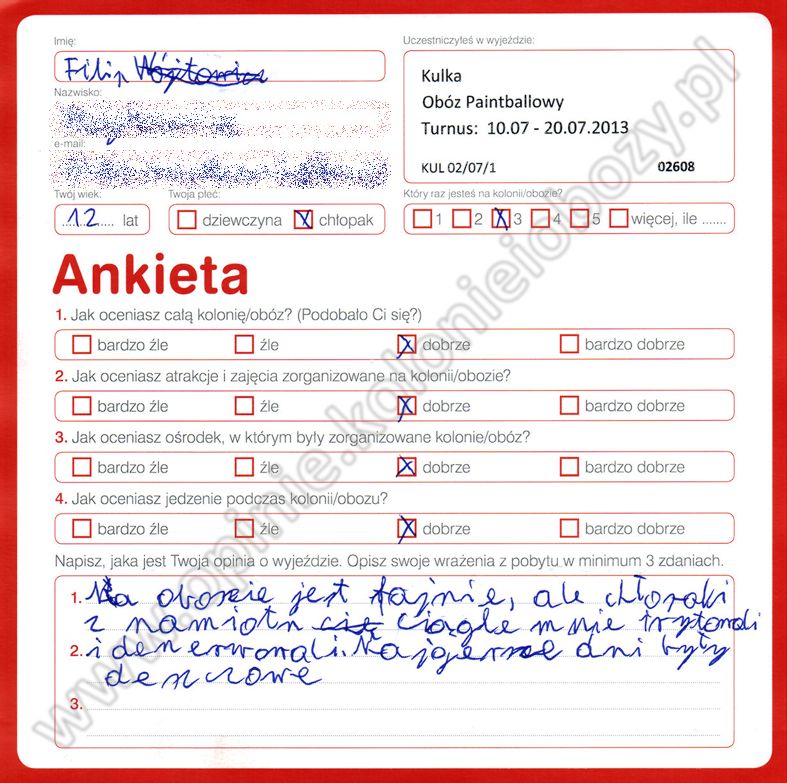 Imię:
Uczestniczyłeś w wyjeździe:
Filip
Kulka
Obóz Paintballowy
Turnus: 10.07 - 20.07.2013
KUL 02/07/1 02608
Nazwisko:
e-mail:
Twój wiek: Twoja płeć: Który raz jesteś na kolonii/obozie?
12 lat dziewczyna X chłopak 1 2 X 3 4 5 więcej, ile .......
Ankieta
1. Jak oceniasz całą kolonię/obóz? (Podobało Ci się?)
bardzo źle źle X dobrze bardzo dobrze
2. Jak oceniasz atrakcje i zajęcia zorganizowane na kolonii/obozie?
bardzo źle źle X dobrze bardzo dobrze
3. Jak oceniasz ośrodek, w którym były zorganizowane kolonie/obóz?
bardzo źle źle X dobrze bardzo dobrze
4. Jak oceniasz jedzenie podczas kolonii/obozu?
bardzo źle źle X dobrze bardzo dobrze
Napisz, jaka jest Twoja opinia o wyjeździe. Opisz swoje wrażenia z pobytu w minimum 3 zdaniach.
1. Na obozie jest fajnie, ale chłopaki
z namiotu ciągle mnie irytowali
2. i denerwowali. Najgorsze dni były
deszczowe
3.
www.opinie.kolonieiobozy.pl